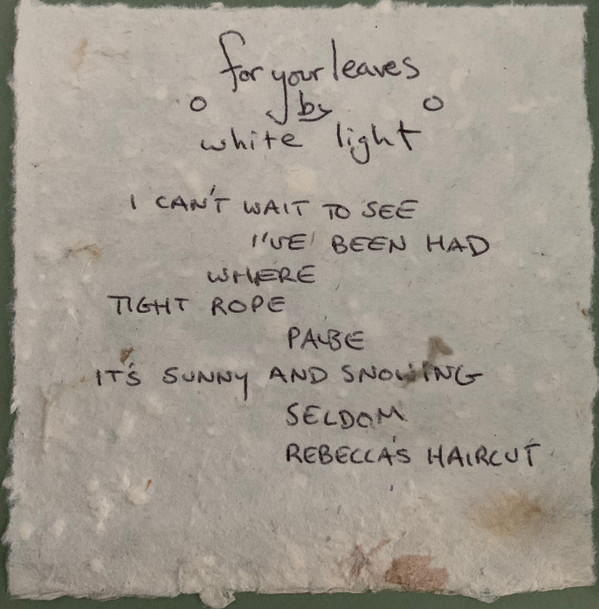 for your leaves
by
white light
I CAN'T WAIT TO SEE
I'VE BEEN HAD
WHERE
TIGHT ROPE
IT'S SUNNY AND SNOWING
SELDOM
REBECCA'S HAIRCUT